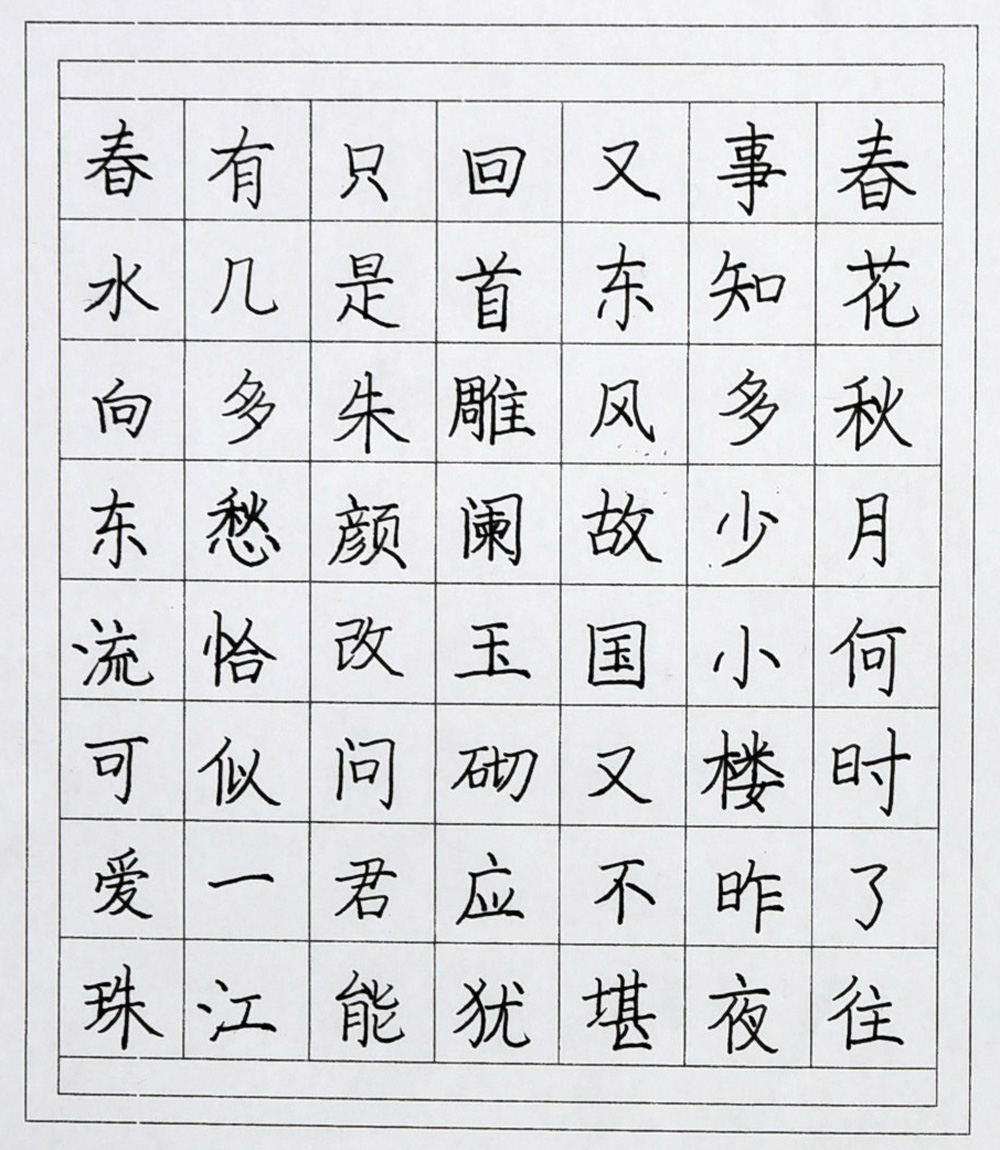 春花秋月何时了往
事知多少小楼昨夜
又东风故国又不堪
回首雕阑玉砌应犹
只是朱颜改问君能
有几多愁恰似一江
春水向东流可爱珠